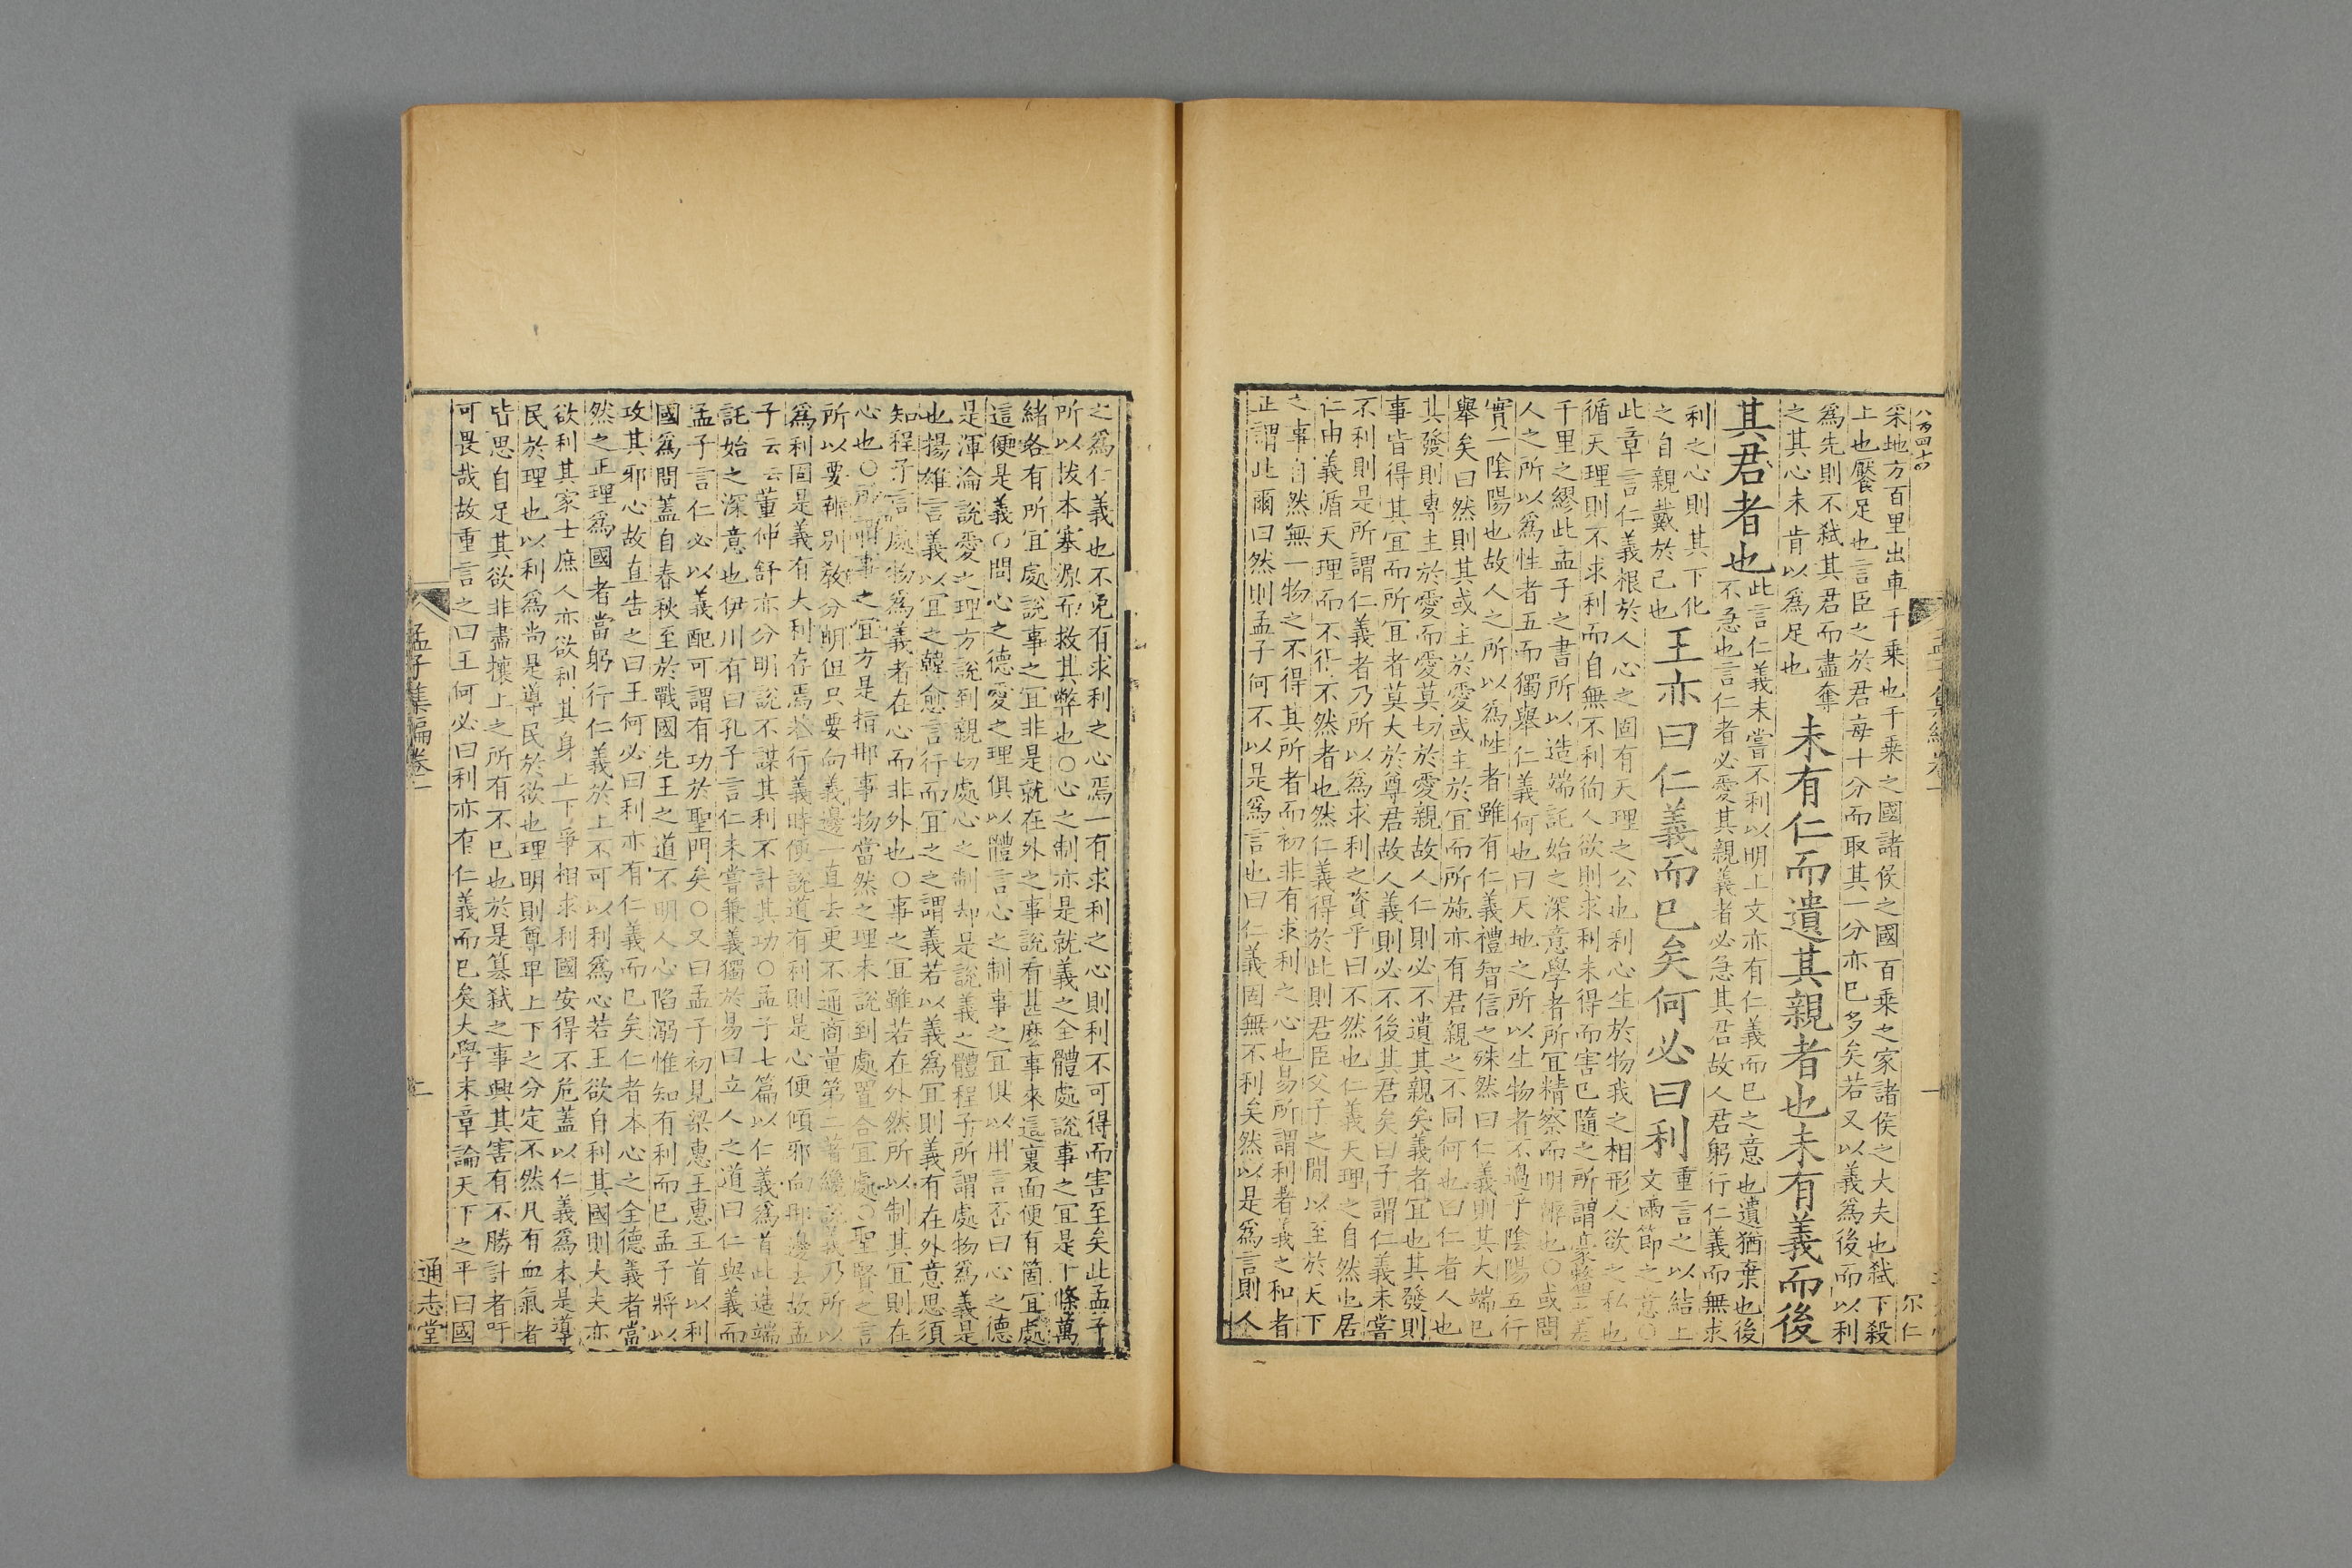 八百四十四
孟子集編卷一
一
尔仁
采地方百里出車千乘也千乘之國諸侯之國百乘之家諸侯之大夫也弑下殺
上也饜足也言臣之於君每十分而取其一分亦已多矣若又以義爲後而以利
爲先則不弑其君而盡奪
之其心未肯以爲足也
未有仁而遺其親者也未有義而後
其君者也
此言仁義未嘗不利以明上文亦有仁義而已之意也遺猶棄也後
不急也言仁者必愛其親義者必急其君故人君躬行仁義而無求
利之心則其下化
之自親戴於己也
王亦曰仁義而已矣何必曰利
重言之以結上
文兩節之意○
此章言仁義根於人心之固有天理之公也利心生於物我之相形人欲之私也
循天理則不求利而自無不利徇人欲則求利未得而害已隨之所謂毫釐之差
千里之繆此孟子之書所以造端託始之深意學者所宜精察而明辨也○或問
人之所以爲性者五而獨舉仁義何也曰天地之所以生物者不過乎陰陽五行
實一陰陽也故人之所以爲性者雖有仁義禮智信之殊然曰仁義則其大端已
舉矣曰然則其或主於愛或主於宜而所施亦有君親之不同何也曰仁者人也
其發則專主於愛而愛莫切於愛親故人仁則必不遺其親矣義者宜也其發則
事皆得其宜而所宜者莫大於尊君故人義則必不後其君矣曰子謂仁義未嘗
不利則是所謂仁義者乃所以爲求利之資乎曰不然也仁義天理之自然也居
仁由義循天理而不得不然者也然仁義得於此則君臣父子之閒以至於天下
之事自然無一物之不得其所者而初非有求利之心也易所謂利者義之和者
正謂此爾曰然則孟子何不以是爲言也曰仁義固無不利矣然以是爲言則人
之爲仁義也不免有求利之心焉一有求利之心則利不可得而害至矣此孟子
所以拔本塞源而救其弊也○心之制亦是就義之全體處說事之宜是千條萬
緒各有所宜處說事之宜非是就在外之事說看甚麽事來這裏面便有箇宜處
這便是義○問心之德愛之理俱以體言心之制事之宜俱以用言否曰心之德
是渾淪說愛之理方說到親切處心之制却是說義之體程子所謂處物爲義是
也揚雄言義以宜之韓愈言行而宜之之謂義若以義爲宜則義有在外意思須
知程子言處物爲義者在心而非外也○事之宜雖若在外然所以制其宜則在
心也○所謂事之宜方是指那事物當然之理未說到處置合宜處○聖賢之言
所以要辨别教分明但只要向義邊一直去更不通商量第二著纔說義乃所以
爲利固是義有大利存焉若行義時便說道有利則是心便傾邪向那邊去故孟
子云云董仲舒亦分明說不謀其利不計其功○孟子七篇以仁義爲首此造端
託始之深意也伊川有曰孔子言仁未嘗兼義獨於易曰立人之道曰仁與義而
孟子言仁必以義配可謂有功於聖門矣○又曰孟子初見梁惠王惠王首以利
國爲問蓋自春秋至於戰國先王之道不明人心陷溺惟知有利而已孟子將以
攻其邪心故直告之曰王何必曰利亦有仁義而已矣仁者本心之全德義者當
然之正理爲國者當躬行仁義於上不可以利爲心若王欲自利其國則大夫亦
欲利其家士庶人亦欲利其身上下爭相求利國安得不危蓋以仁義爲本是導
民於理也以利爲尚是導民於欲也理明則尊卑上下之分定不然凡有血氣者
皆思自足其欲非盡攘上之所有不已也於是簒弑之事興其害有不勝計者吁
可畏哉故重言之曰王何必曰利亦有仁義而已矣大學末章論天下之平曰國
孟子集編卷一
二
通志堂